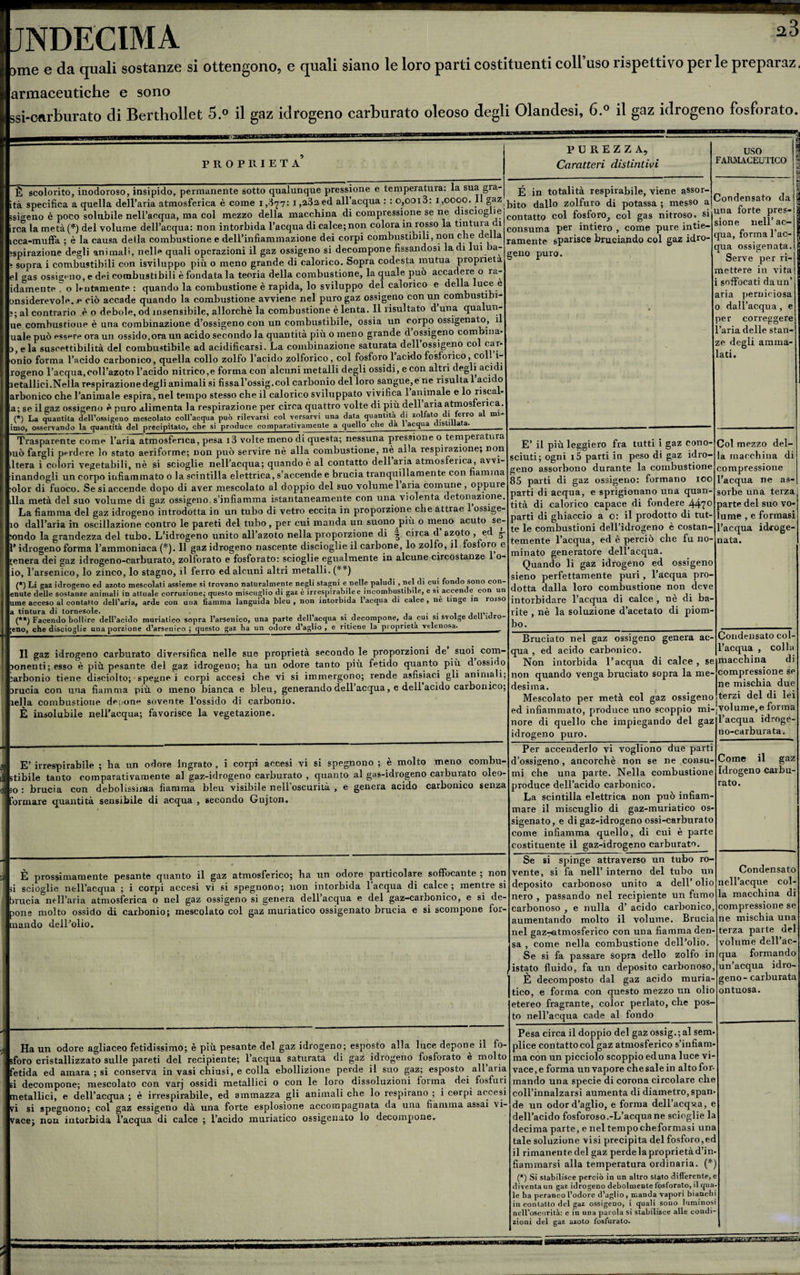 UNDECIMA
23
ome e da quali sostanze si ottengono, e quali siano le loro parti costituenti coll'uso rispettivo per le preparaz.
armaceutiche e sono
ssi-carburato di Berthollet 5.° il gaz idrogeno carburato oleoso degli Olandesi, 6.° il gaz idrogeno fosforato.
PROPRIETA'
È scolorito, inodoroso, insipido, permanente sotto qualunque pressione e temperatura: la sua gra-
ità specifica a quella dell'aria atmosferica è come 1,377: 1,232 ed all'acqua : : 0,0013: 1,0000. Il gaz
ssigeno è poco solubile nell'acqua, ma col mezzo della macchina di compressione se ne discioglie
irca la metà (*) del volume dell'acqua: non intorbida l'acqua di calce; non colora in rosso la tintura di
acca-muffa ; è la causa della combustione e dell'infiammazione dei corpi combustibili, non che della
espirazione degli animali, nelle quali operazioni il gaz ossigeno si decompone fissandosi la di lui ba-
e sopra i combustibili con isviluppo più o meno grande di calorico. Sopra codesta mutua proprietà
el gas ossigeno, e dei combustibili è fondata la teoria della combustione, la quale può accadere o ra-
idamente , o lentamente : quando la combustione è rapida, lo sviluppo del calorico e della luce è
onsiderevole, e ciò accade quando la combustione avviene nel puro gaz ossigeno con un combustibi-
e; al contrario è o debole, od insensibile, allorchè la combustione è lenta. Il risultato d'una qualun-
ue combustione è una combinazione d'ossigeno con un combustibile, ossia un corpo ossigenato, il
uale può essere ora un ossido, ora un acido secondo la quantità più o meno grande d'ossigeno combina-
o, e la suscettibilità del combustibile ad acidificarsi. La combinazione saturata dell'ossigeno col car-
onio forma l'acido carbonico, quella collo zolfo l'acido zolforico, col fosforo l'acido fosforico, coll'i-
rogeno l'acqua, coll'azoto l'acido nitrico, e forma con alcuni metalli degli ossidi, e con altri degli acidi
metallici. Nella respirazione degli animali si fissa l'ossig. col carbonio del loro sangue, e ne risulta l'acido
arbonico che l'animale espira, nel tempo stesso che il calorico sviluppato vivifica l'animale e lo riscal-
a; se il gaz ossigeno è puro alimenta la respirazione per circa quattro volte di più dell'aria atmosferica.
(*) La quantità dell'ossigeno mescolato coll'acqua può rilevarsi col versarvi una data quantità di zolfato di ferro al mi-
imo, osservando la quantità del precipitato, che si produce comparativamente a quello che dà l'acqua distillata.
Trasparente come l'aria atmosferica, pesa 13 volte meno di questa; nessuna pressione o temperatura
può fargli perdere lo stato aeriforme; non può servire nè alla combustione, nè alla respirazione; non
altera i colori vegetabili, nè si scioglie nell'acqua; quando è al contatto dell'aria atmosferica, avvi-
cinandogli un corpo infiammato o la scintilla elettrica, s'accende e brucia tranquillamente con fiamma
color di fuoco. Se si accende dopo di aver mescolato al doppio del suo volume l'aria comune, oppure
alla metà del suo volume di gaz ossigeno, s'infiamma istantaneamente con una violenta detonazione.
La fiamma del gaz idrogeno introdotta in un tubo di vetro eccita in proporzione che attrae l'ossige-
no dall'aria in oscillazione contro le pareti del tubo, per cui manda un suono più o meno acuto se-
condo la grandezza del tubo. L'idrogeno unito all'azoto nella proporzione di ⅘ circa d'azoto, ed ⅕
l'idrogeno forma l'ammoniaca (*). Il gaz idrogeno nascente discioglie il carbone, lo zolfo, il fosforo e
genera dei gaz idrogeno-carburato, zolforato e fosforato: scioglie egualmente in alcune circostanze l'o-
io, l'arsenico, lo zinco, lo stagno, il ferro ed alcuni altri metalli. (**)
(*) Li gaz idrogeno ed azoto mescolati assieme si trovano naturalmente negli stagni e nelle paludi , nel di cui fondo sono con-
tenute delle sostanze animali in attuale corruzione; questo miscuglio di gaz è irrespirabile e incombustibile, e si accende con un
lume acceso al contatto dell'aria, arde con una fiamma languida bleu , non intorbida l'acqua di calce , nè tinge in rosso
la tintura di tornesole.
(**) Facendo bollire dell'acido muriatico sopra l'arsenico, una parte dell'acqua si decompone, da cui si svolge dell'idro-
geno, che discioglie una porzione d'arsenico ; questo gaz ha un odore d'aglio , e ritiene la proprietà velenosa.
Il gaz idrogeno carburato diversifica nelle sue proprietà secondo le proporzioni de' suoi com-
ponenti; esso è più pesante del gaz idrogeno; ha un odore tanto più fetido quanto più d'ossido
carbonio tiene disciolto; spegne i corpi accesi che vi si immergono; rende asfisiaci gli animali;
brucia con una fiamma più o meno bianca e bleu, generando dell'acqua, e dell'acido carbonico;
nella combustione depone sovente l'ossido di carbonio.
È insolubile nell'acqua; favorisce la vegetazione.
E' irrespirabile ; ha un odore ingrato , i corpi accesi vi si spegnono ; è molto meno combu-
stibile tanto comparativamente al gaz-idrogeno carburato , quanto al gas-idrogeno carburato oleo-
so : brucia con debolissima fiamma bleu visibile nell'oscurità , e genera acido carbonico senza
formare quantità sensibile di acqua , secondo Gujton.
È prossimamente pesante quanto il gaz atmosferico; ha un odore particolare soffocante ; non
si scioglie nell'acqua ; i corpi accesi vi si spegnono; non intorbida l'acqua di calce ; mentre si
brucia nell'aria atmosferica o nel gaz ossigeno si genera dell'acqua e del gaz-carbonico, e si de-
pone molto ossido di carbonio; mescolato col gaz muriatico ossigenato brucia e si scompone for-
mando dell'olio.
Ha un odore agliaceo fetidissimo; è più pesante del gaz idrogeno; esposto alla luce depone il fo-
sforo cristallizzato sulle pareti del recipiente; l'acqua saturata di gaz idrogeno fosforato è molto
fetida ed amara ; si conserva in vasi chiusi, e colla ebollizione perde il suo gaz; esposto all'aria
si decompone; mescolato con varj ossidi metallici o con le loro dissoluzioni forma dei fosfuri
metallici, e dell'acqua ; è irrespirabile, ed ammazza gli animali che lo respirano ; i corpi accesi
vi si spegnono; col gaz ossigeno dà una forte esplosione accompagnata da una fiamma assai vi-
vace; non intorbida l'acqua di calce ; l'acido muriatico ossigenato lo decompone.
PUREZZA,
Caratteri distintivi
È in totalità respirabile, viene assor-
bito dallo zolfuro di potassa ; messo a
contatto col fosforo, col gas nitroso. si
consuma per intiero , come pure intie-
ramente sparisce bruciando col gaz idro-
geno puro.
E' il più leggiero fra tutti i gaz cono-
sciuti; ogni 15 parti in peso di gaz idro-
geno assorbono durante la combustione
85 parti di gaz ossigeno: formano 100
parti di acqua, e sprigionano una quan-
tità di calorico capace di fondere 4470
parti di ghiaccio a 0: il prodotto di tut-
te le combustioni dell'idrogeno è costan-
temente l'acqua, ed è perciò che fu no-
minato generatore dell'acqua.
Quando li gaz idrogeno ed ossigeno
sieno perfettamente puri , l'acqua pro-
dotta dalla loro combustione non deve
intorbidare l'acqua di calce , nè di ba-
rite , nè la soluzione d'acetato di piom-
bo.
Bruciato nel gaz ossigeno genera ac-
qua , ed acido carbonico.
Non intorbida l'acqua di calce , se
non quando venga bruciato sopra la me-
desima.
Mescolato per metà col gaz ossigeno
ed infiammato, produce uno scoppio mi-
nore di quello che impiegando del gaz
idrogeno puro.
Per accenderlo vi vogliono due parti
d'ossigeno , ancorchè non se ne consu-
mi che una parte. Nella combustione
produce dell'acido carbonico.
La scintilla elettrica non può infiam-
mare il miscuglio di gaz-muriatico os-
sigenato, e di gaz-idrogeno ossi-carburato
come infiamma quello, di cui è parte
costituente il gaz-idrogeno carburato.
Se si spinge attraverso un tubo ro-
vente, si fa nell' interno del tubo un
deposito carbonoso unito a dell' olio
nero , passando nel recipiente un fumo
carbonoso , e nulla d' acido carbonico,
aumentando molto il volume. Brucia
nel gaz-atmosferico con una fiamma den-
sa , come nella combustione dell'olio.
Se si fa passare sopra dello zolfo in
istato fluido, fa un deposito carbonoso,
È decomposto dal gaz acido muria-
tico, e forma con questo mezzo un olio
etereo fragrante, color perlato, che pos-
to nell'acqua cade al fondo
Pesa circa il doppio del gaz ossig.; al sem-
plice contatto col gaz atmosferico s'infiam-
ma con un picciolo scoppio ed una luce vi-
vace, e forma un vapore che sale in alto for-
mando una specie di corona circolare che
coll'innalzarsi aumenta di diametro, span-
de un odor d'aglio, e forma dell'acqua, e
dell'acido fosforoso.-L'acqua ne scioglie la
decima parte, e nel tempo che formasi una
tale soluzione visi precipita del fosforo, ed
il rimanente del gaz perde la proprietà d'in-
fiammarsi alla temperatura ordinaria. (*)
(*) Si stabilisce perciò in un altro stato differente, e
diventa un gaz idrogeno debolmente fosforato, il qua-
le ha peranco l'odore d'aglio , manda vapori bianchi
in contatto del gaz ossigeno, i quali sono luminosi
nell'oscurità: e in una parola si stabilisce alle condi-
zioni del gaz azoto fosfurato.
USO
FARMACEUTICO
Condensato da
una forte pres-
sione nell' ac-
qua, forma l'ac-
qua ossigenata.
Serve per ri-
mettere in vita
i soffocati da un'
aria perniciosa
o dall'acqua , e
per correggere
l'aria delle stan-
ze degli amma-
lati.
Col mezzo del-
la macchina di
compressione
l'acqua ne as-
sorbe una terza
parte del suo vo-
lume , e formasi
l'acqua idroge-
nata.
Condensato col-
l'acqua , colla
macchina di
compressione se
ne mischia due
terzi del di lei
volume, e forma
l'acqua idroge-
no-carburata.
Come il gaz
Idrogeno carbu-
rato.
Condensato
nell'acque col-
la macchina di
compressione se
ne mischia una
terza parte del
volume dell'ac-
qua formando
un'acqua idro-
geno-carburata
ontuosa.